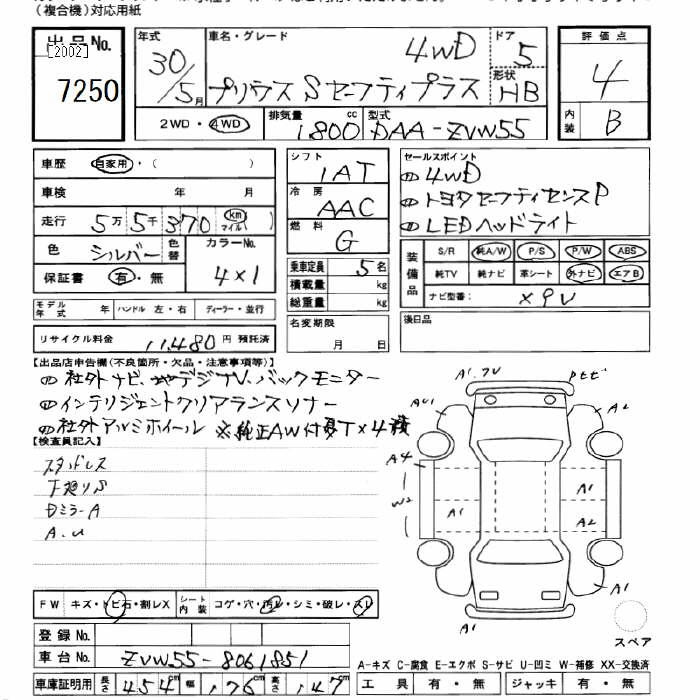 (複合機)対応用紙
出品No.
[2002]
7250
年式
30/5月
車名・グレード
4WD
プリウス Sセーフティプラス
ドア
5
形状
HB
2WD・4WD
排気量
1800cc
型式
DAA-ZVW55
評価点
4
内装
B
車歴
自家用・( )
車検
年 月
走行
5万5千370 km マイル )
色
シルバー
色替
カラーNo.
4×1
保証書
有・無
シフト
1AT
冷房
AAC
燃料
G
乗車定員 5名
積載量 kg
総重量 kg
名変期限
月 日
セールスポイント
4WD
トヨタセーフティセンスP
LEDヘッドライト
装備品
S/R 純A/W P/S P/W ABS
純TV 純ナビ 革シート 外ナビ エアB
ナビ型番:
X9V
モデル年式 年 ハンドル 左・右 ディーラー・並行
リサイクル料金 11,480円 預託済
後日品
【出品店申告欄(不良箇所・欠品・注意事項等)】
社外ナビ、デジTV、バックモニター
インテリジェントクリアランスソナー
社外アルミホイール ※純正AW付夏T×4積
【検査員記入】
スタッドレス
下廻りS
DミラーA
A.U
A1.アU
トビビ
AU1
A2
A4
W2
A1
A1
A2
A1
A1
スペア
FW キズ・トビ石・割レX
シート内装 コゲ・穴・汚レ・シミ・破レ・スレ
登録No.
車台No. ZVW55-8061851
車庫証明用 長さ 454cm 幅 176cm 高さ 147cm
A-キズ C-腐食 E-エクボ S-サビ U-凹ミ W-補修 XX-交換済
工具 有・無 ジャッキ 有・無